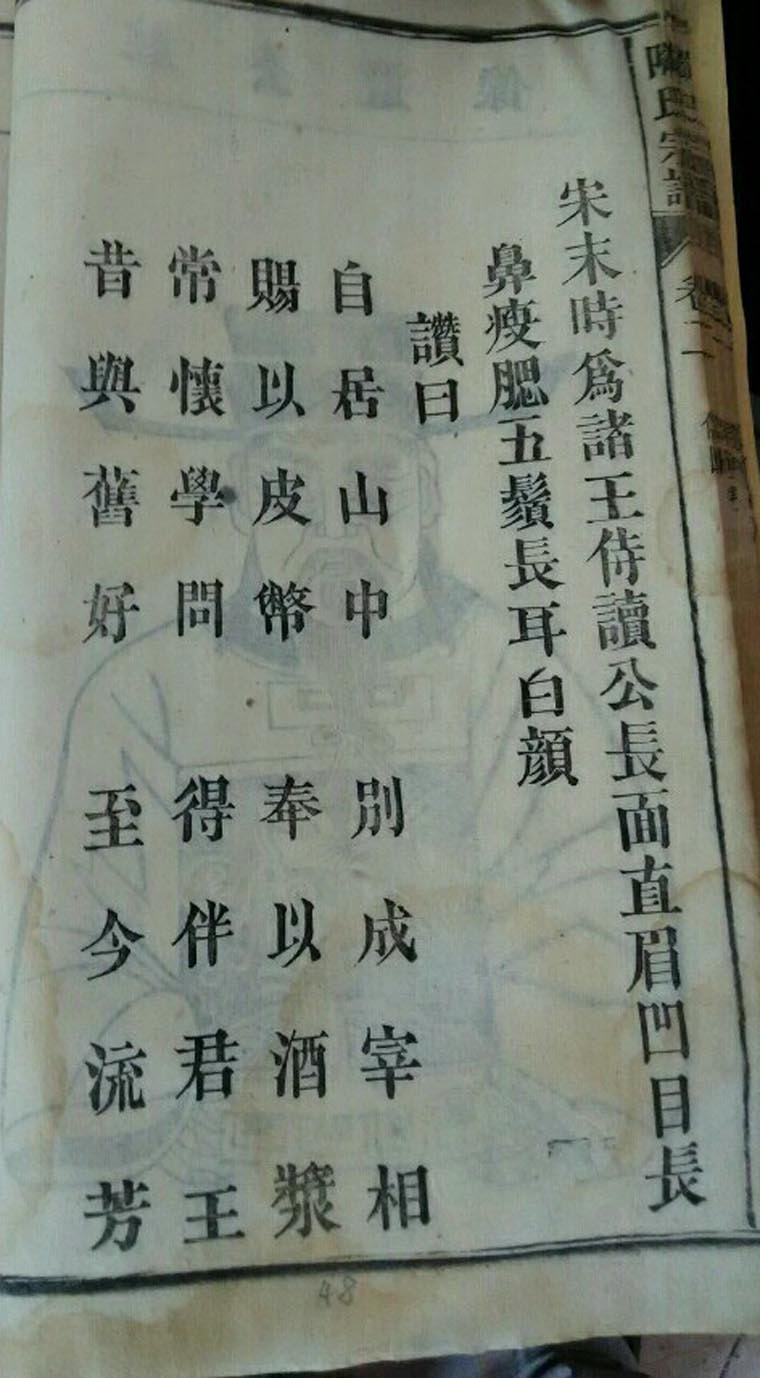 氏宗譜
卷二
宋末時爲諸王侍讀公長面直眉凹目長
鼻瘦腮五鬚長耳白顔
讚曰
自居山中 別成宰相
賜以皮幣 奉以酒漿
常懷學問 得伴君王
昔與舊好 至今流芳
48